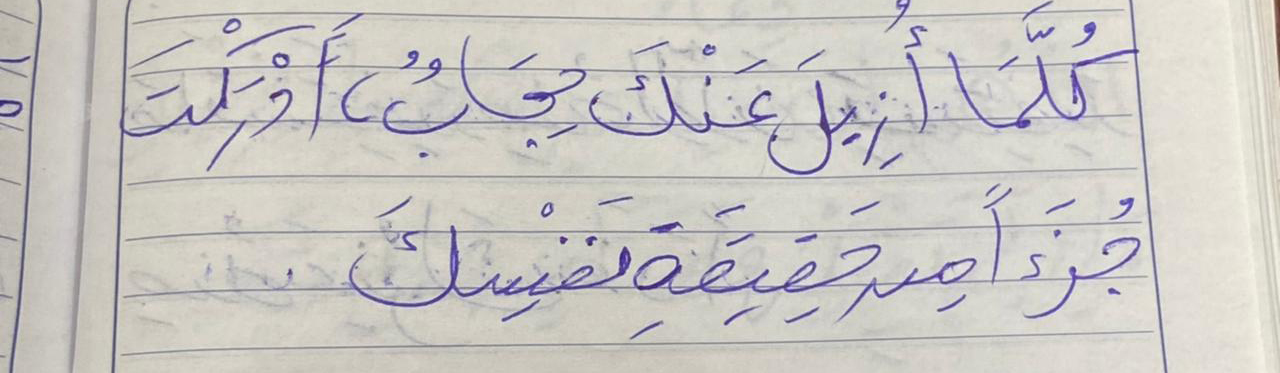 كُلَّمَا أُزِيلَ عَنْكَ حِجَابٌ، أَدْرَكْتَ
جُزَءاً مِن حَقِيقَةِ نَفْسِكَ